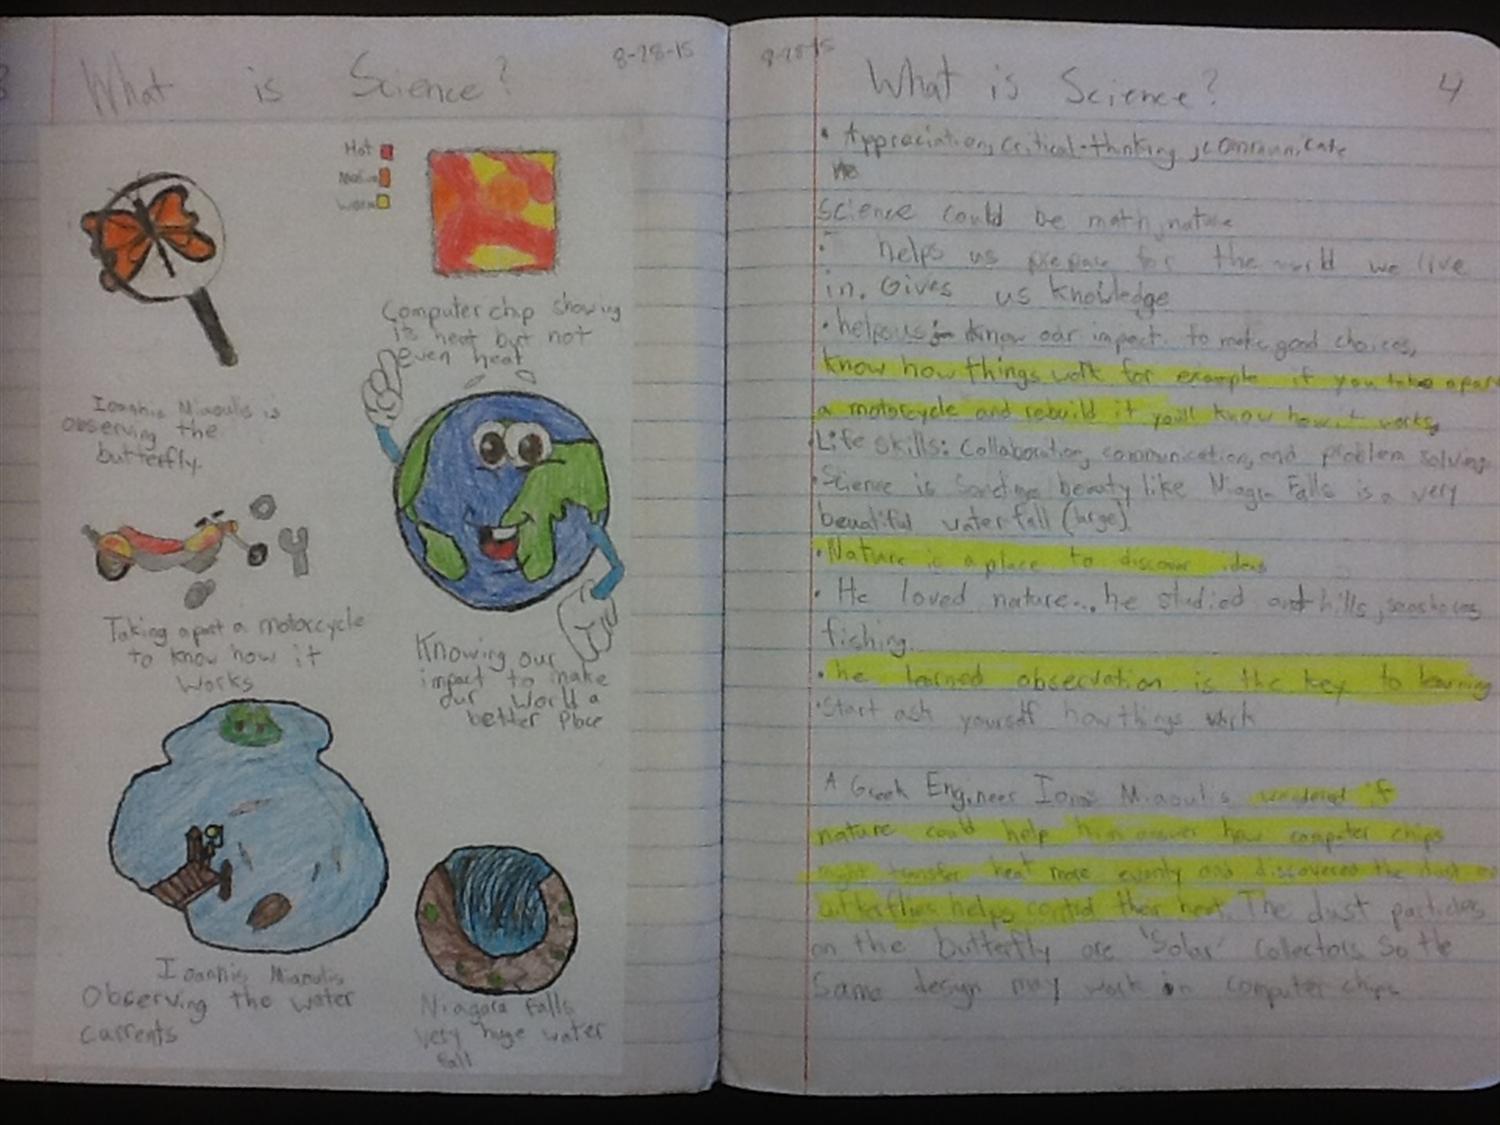 What is Science?
8-28-15
Hot
Warm
Computer chip showing
is heat but not
even heat
Ioannis Miaoulis is
observing the
butterfly.
Taking apart a motorcycle
to know how it
works
Knowing our
impact to make
our World a
better Place
Ioannis Miaoulis
Observing the water
currents
Niagara falls
very huge water
fall
8-28-15
What is Science?
4
• Appreciation, critical-thinking, communicate
Science could be math, nature
• helps us prepare for the world we live
in. Gives us knowledge
• helps us know our impact to make good choices,
know how things work for example if you take apart
a motorcycle and rebuild it you'll know how it works,
Life skills: Collaboration, communication, and problem solving
• Science is beauty like Niagra Falls is a very
beautiful water fall (large)
• Nature is a place to discover ideas
• He loved nature... he studied hills,
fishing.
• he learned observation is the key to learning
• Start ask yourself how things work
A Greek Engineer Miaoulis wondered if
nature could help him answer how computer chips
might transfer heat more evenly and discovered the dust on
butterflies helps control their heat. The dust particles
on the butterfly are 'Solar' collectors. So the
same design may work in computer chips